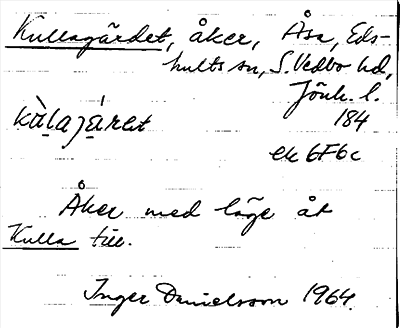 Kullagärdet, åker, Åsa, Eds-
hults sn, S. Vedbo hd,
Jönk. l.
184
kùlajǽret
ek 6F6c
Åker med läge åt
Kulla till.
Inger Danielsson 1964.